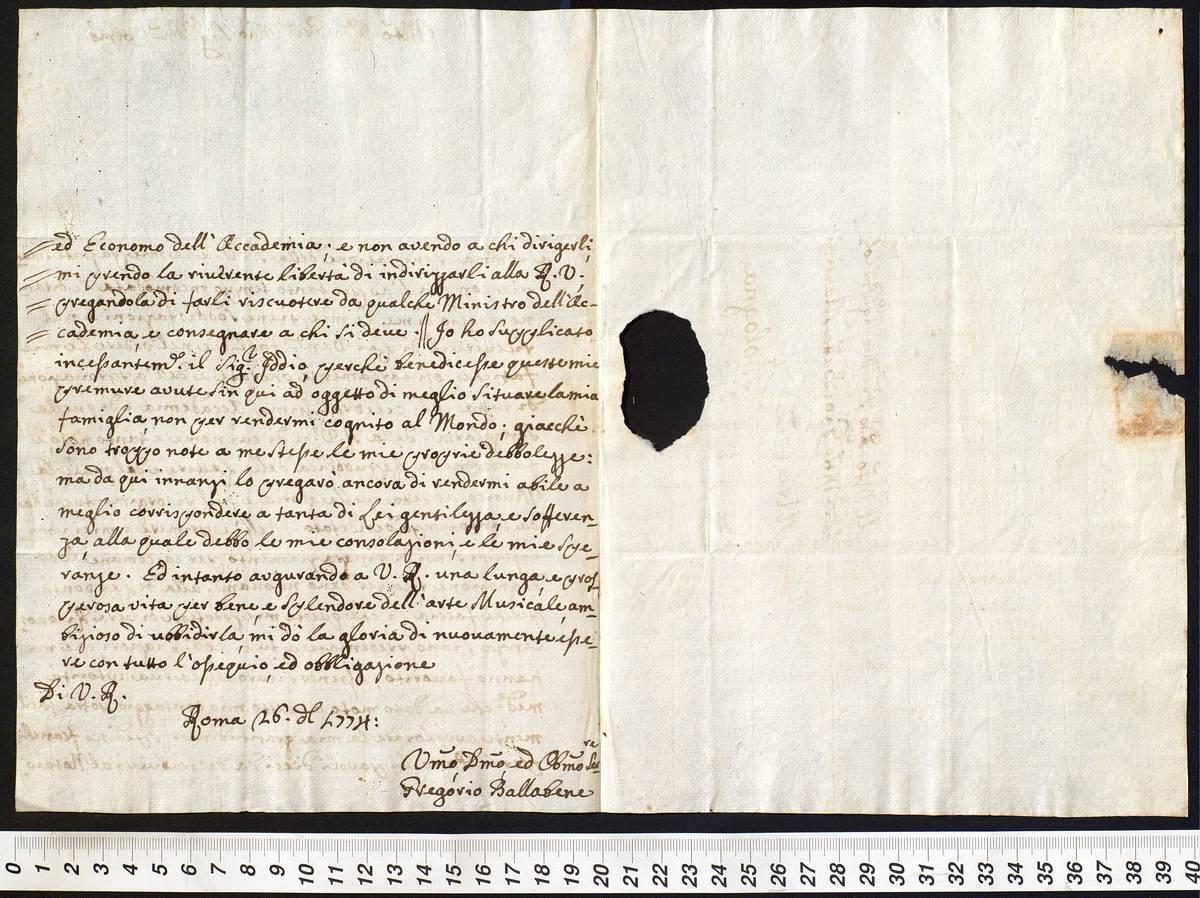 ed Economo dell'Accademia; e non avendo a chi dirigerli,
mi prendo la riverente libertà di indirizzarli alla R. V.,
pregandola di farli riscuotere da qualche Ministro dell'Ac-
cademia, e consegnare a chi si deve. || Io ho supplicato
incessantem.e il Sig.r Iddio, perchè benedicesse queste mie
premure avute sin qui ad oggetto di meglio situare la mia
famiglia, non per rendermi cognito al Mondo; giacchè
sono troppo note a me stesso le mie proprie debbolezze:
ma da qui innanzi lo pregarò ancora di rendermi abile a
meglio corrispondere a tanta di Lei gentilezza, e sofferen-
za, alla quale debbo le mie consolazioni, e le mie spe-
ranze. Ed intanto augurando a V. R. una lunga, e pros-
perosa vita per bene, e splendore dell'arte Musicale, am-
bizioso di ubbidirla, mi dò la gloria di nuovamente esse-
re con tutto l'ossequio, ed obbligazione
Di V. R.
Roma 26. 1774:
Umõ Dmõ, ed Obmõ Ser.re
Gregorio Ballabene
0 1 2 3 4 5 6 7 8 9 10 11 12 13 14 15 16 17 18 19 20 21 22 23 24 25 26 27 28 29 30 31 32 33 34 35 36 37 38 39 40